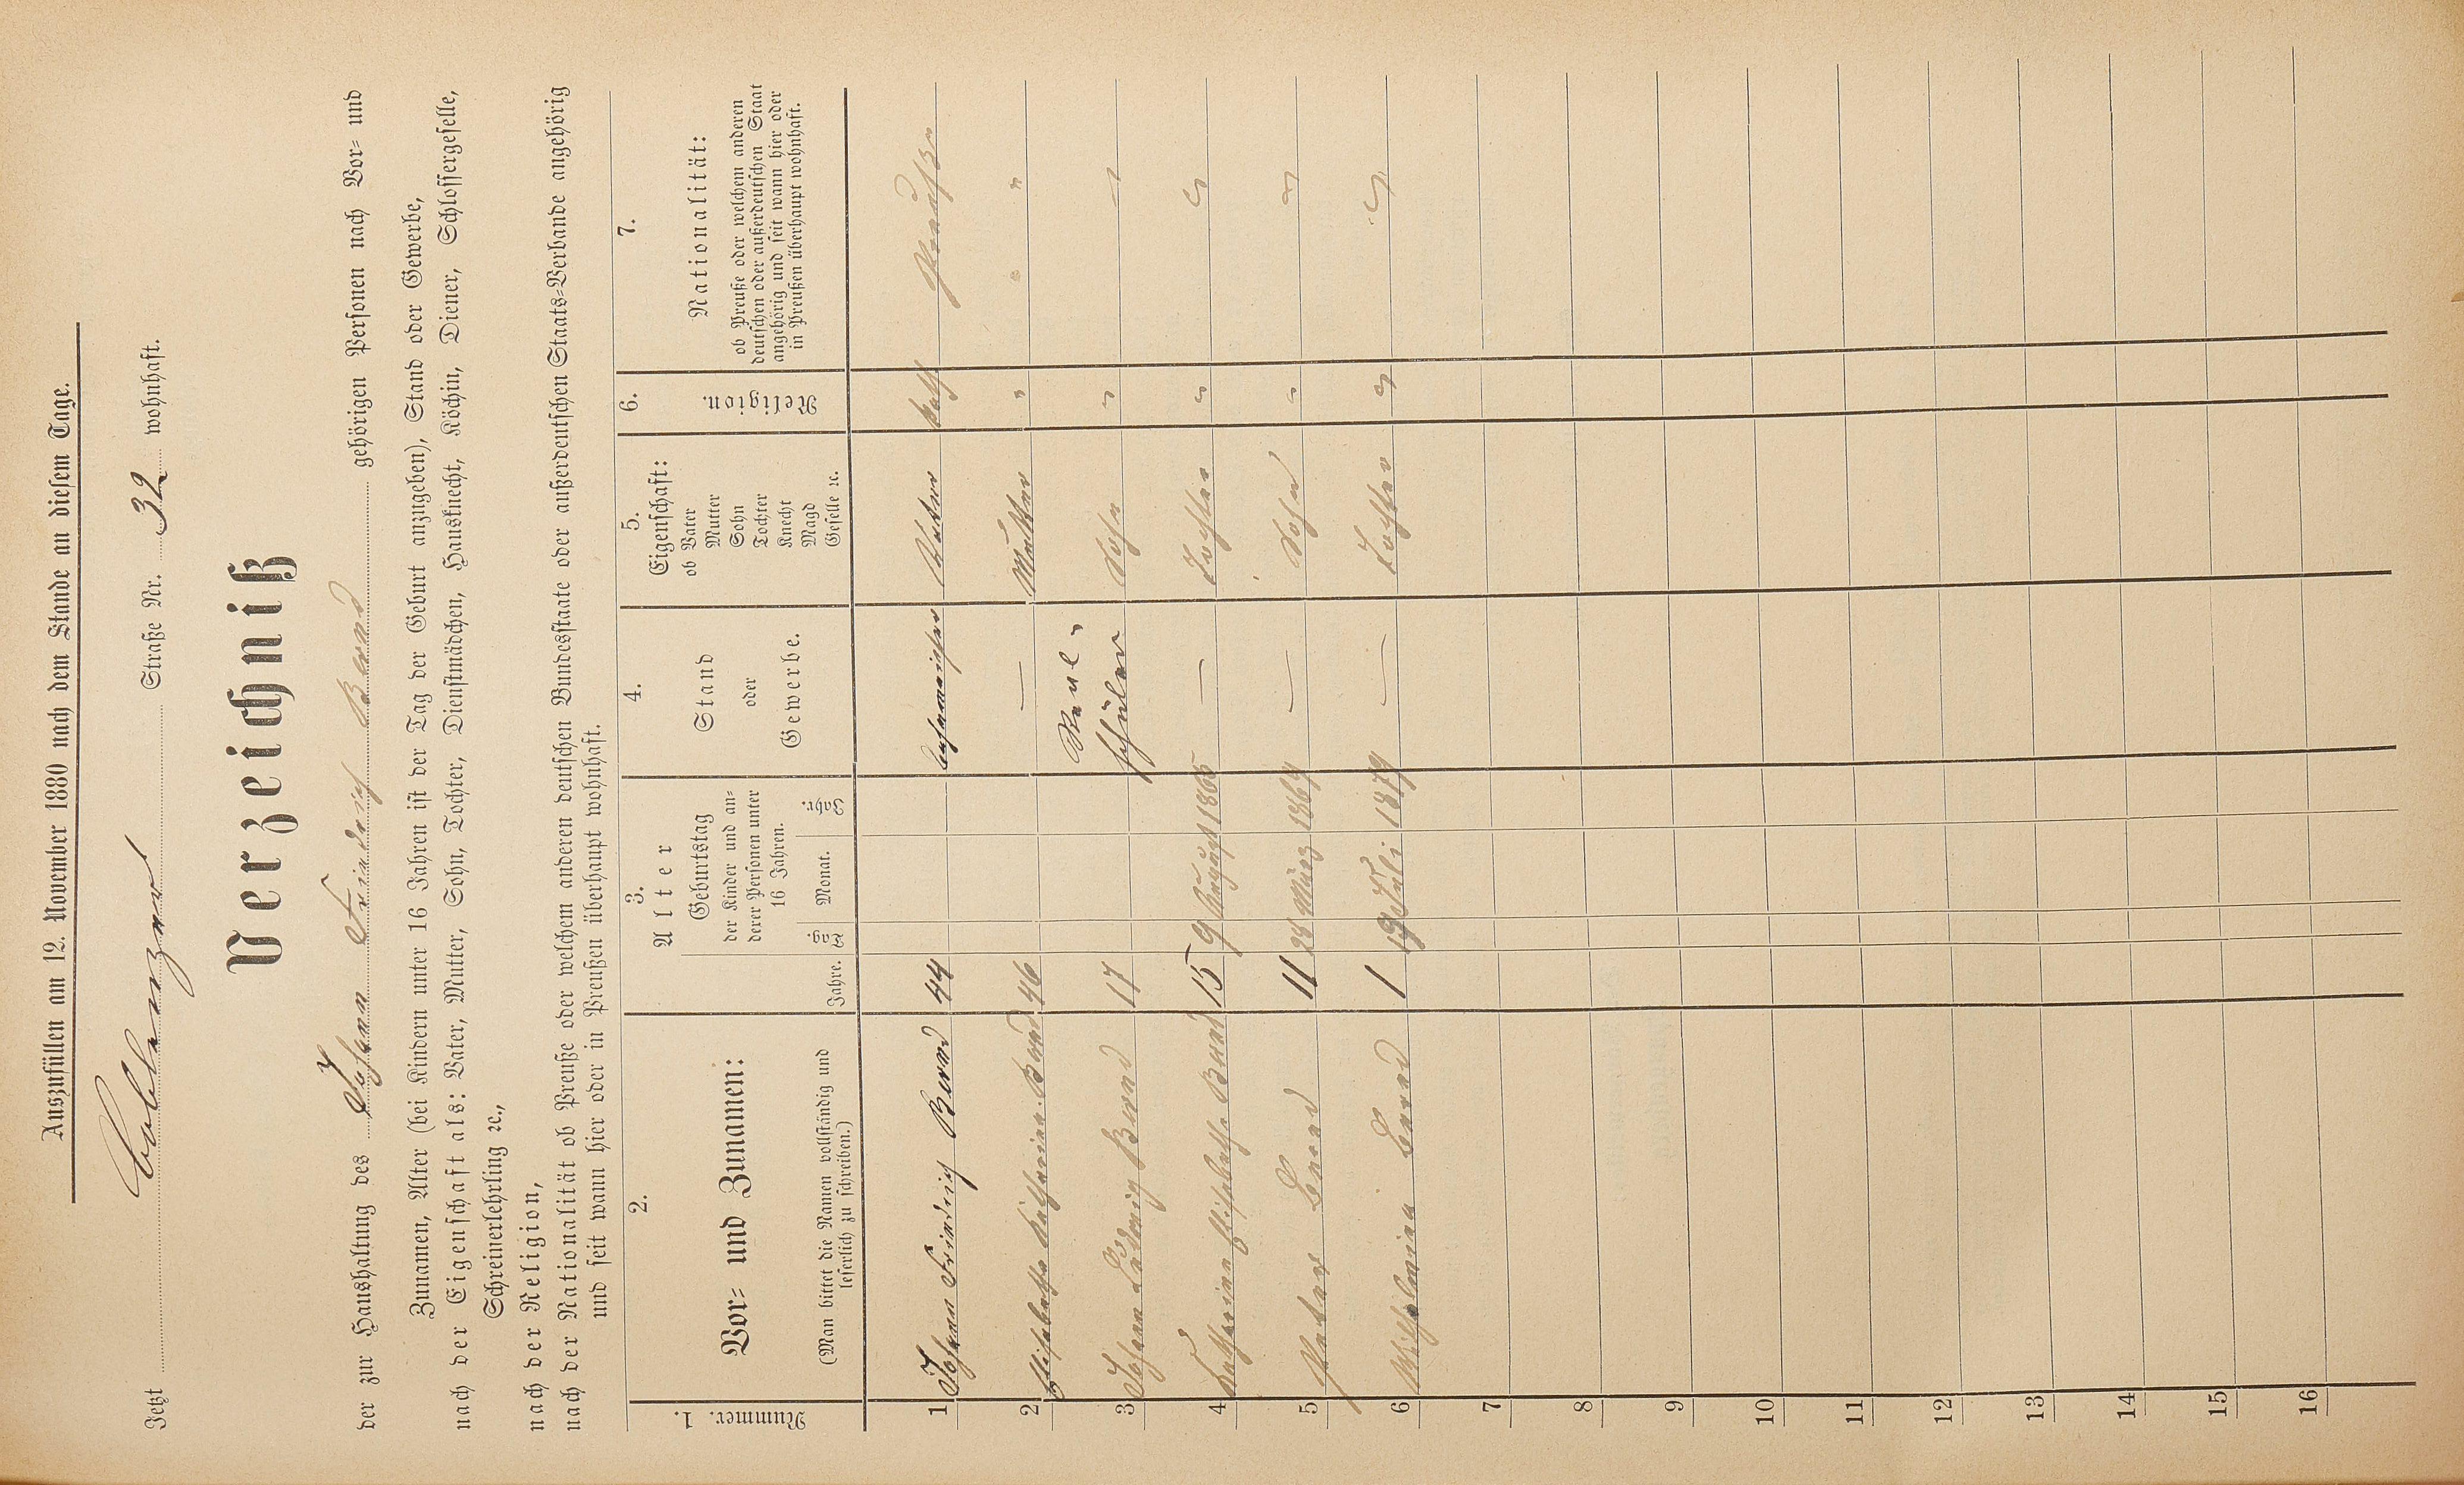 Auszufüllen am 12. November 1880 nach dem Stande an diesem Tage.
Jetzt Coblenzer Straße Nr. 32 wohnhaft.
Verzeichniß
der zur Haushaltung des Johann Friedrich Berend gehörigen Personen nach Vor- und
Zunamen, Alter (bei Kindern unter 16 Jahren ist der Tag der Geburt anzugeben), Stand oder Gewerbe,
nach der Eigenschaft als: Vater, Mutter, Sohn, Tochter, Dienstmädchen, Hausknecht, Köchin, Diener, Schlossergeselle,
Schreinerlehrling ꝛc.,
nach der Religion,
nach der Nationalität ob Preuße oder welchem anderen deutschen Bundesstaate oder außerdeutschen Staats-Verbande angehörig
und seit wann hier oder in Preußen überhaupt wohnhaft.
1. 2. 3. 4. 5. 6. 7.
Nummer.
Vor- und Zunamen:
(Man bittet die Namen vollständig und
leserlich zu schreiben.)
Alter
Jahre.
Geburtstag
der Kinder und an-
derer Personen unter
16 Jahren.
Tag Monat. Jahr.
Stand
oder
Gewerbe.
Eigenschaft:
ob Vater
Mutter
Sohn
Tochter
Knecht
Magd
Geselle ꝛc.
Religion.
Nationalität:
ob Preuße oder welchem anderen
deutschen oder außerdeutschen Staat
angehörig und seit wann hier oder
in Preußen überhaupt wohnhaft.
1 Johann Friedrich Berend 44 Vater kath Preuße
2 Elisabetha Katharina Berend 46 — Mutter " " "
3 Johann Ludwig Berend 17 Real-schüler Sohn " "
4 Katharina Elisabetha Berend 15 9 August 1865 — Tochter " "
5 Peter Berend 11 28 März 1869 — Sohn " "
6 Wilhelmina Berend 1 19 Juli 1879 — Tochter " "
7
8
9
10
11
12
13
14
15
16